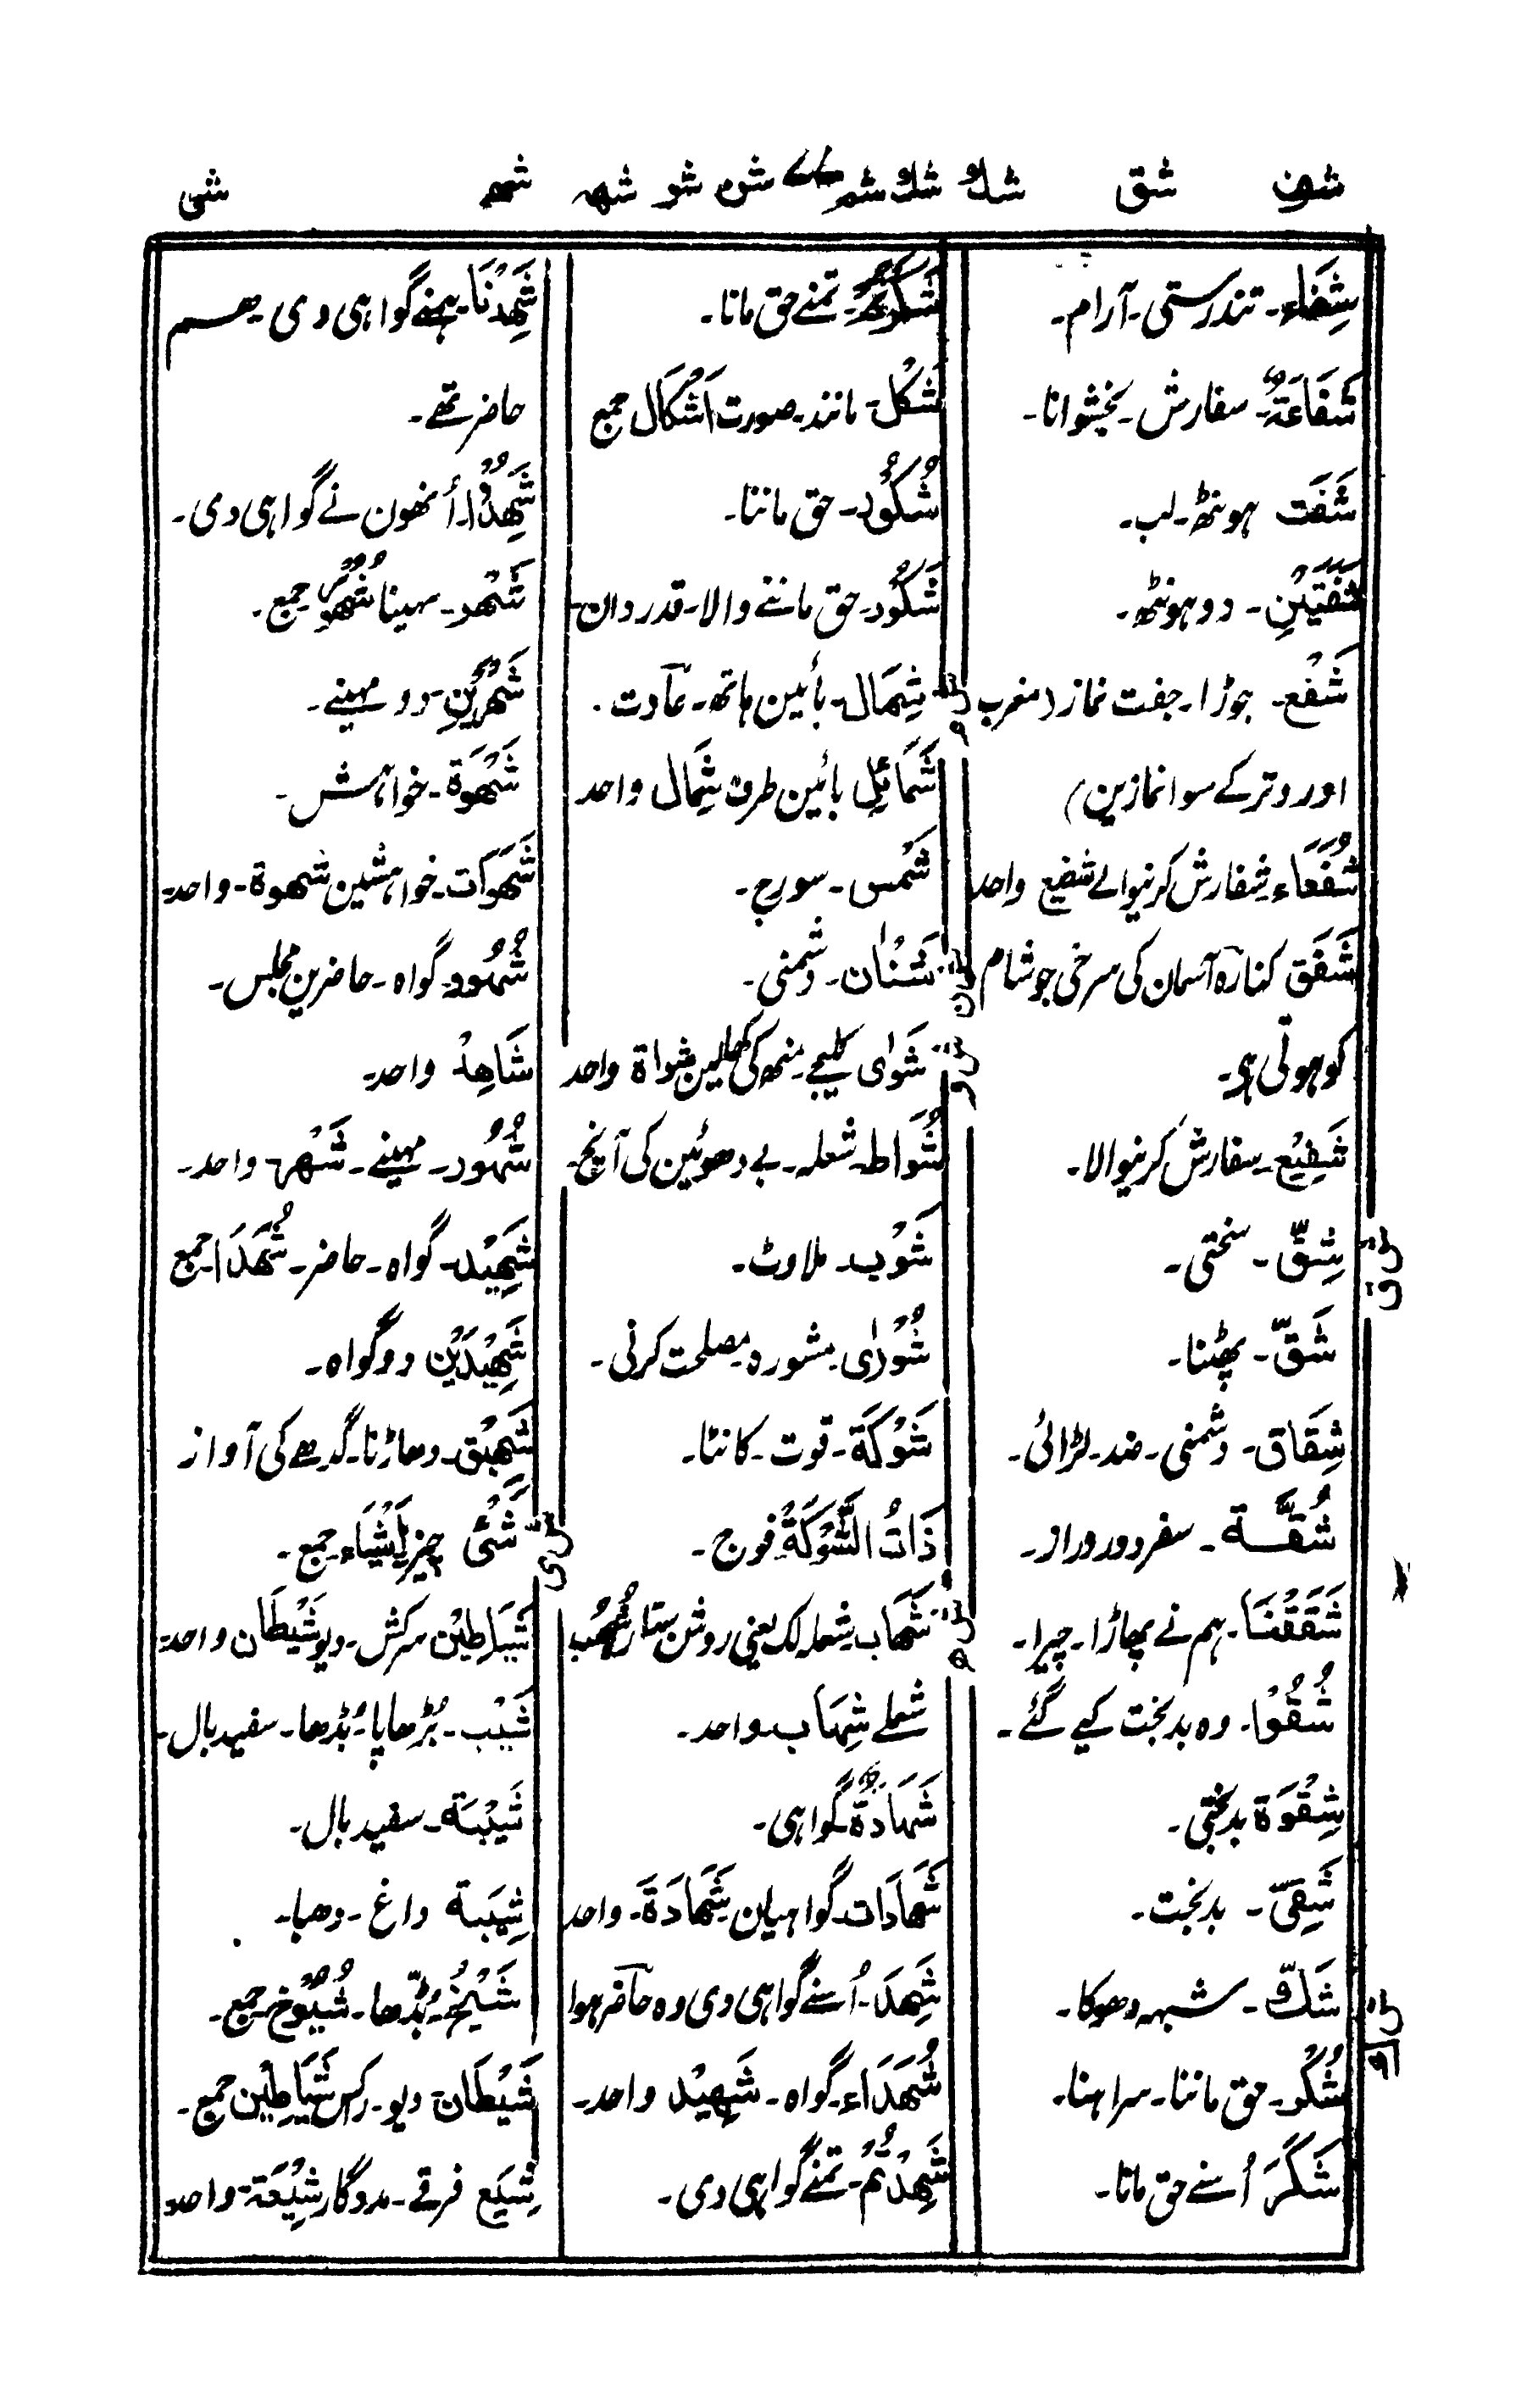 شف شق شک شک شم شن شو شہ شہ شی
شِفَاء۔ تندرستی۔ آرام۔
شَفَاعَةٌ۔ سفارش۔ بخشوانا۔
شَفَت ہونٹھ۔ لب۔
شَفَتَيْنِ۔ دو ہونٹھ۔
شَفْع۔ جوڑا۔ جفت نماز (مغرب
اور وتر کے سوا نمازین)
شُفَعَاء سفارش کرنیوالے شفیع واحد
شَفَق کنارہ آسمان کی سرخی جو شام
کو ہوتی ہی۔
شَفِيْع۔ سفارش کرنیوالا۔
شق
شِقّ۔ سختی۔
شَقّ۔ پھٹنا۔
شِقَاق۔ دشمنی۔ ضد۔ لڑائی۔
شُقَّة۔ سفر دور دراز۔
شَقَقْنَا۔ ہم نے پھاڑا۔ چیرا۔
شُقُوْا۔ وہ بدبخت کیے گئے۔
شِقْوَة بدبختی۔
شَقِیّ۔ بدبخت۔
شک
شَكّ۔ شبہہ دھوکا۔
شُكْر۔ حق ماننا۔ سراہنا۔
شَكَرَ اُسنے حق مانا۔
شَكَرْتُمْ۔ تمنے حق مانا۔
شَكْل۔ مانند۔ صورت اَشْكَال جمع
شُكُوْر۔ حق ماننا۔
شَكُوْر۔ حق ماننے والا۔ قدردان۔
شم
شِمَال۔ بائین ہاتھ۔ عادت۔
شَمَائِل بائین طرف شِمَال واحد
شَمْس۔ سورج۔
شن
شَنَاٰن۔ دشمنی۔
شو
شَوٰی کلیجے۔ منھ کی کھالین شواة واحد
شُوَاظ۔ شعلہ۔ بے دھوئین کی آنچ۔
شَوْب۔ ملاوٹ۔
شُوْرٰی۔ مشورہ۔ مصلحت کرنی۔
شَوْكَة۔ قوت۔ کانٹا۔
ذَاتُ الشَّوْكَةُ۔ فوج۔
شہ
شَهَاب۔ شعلہ لک یعنی روشن ستارہ شُهُب
شعلے شِهَاب واحد۔
شَهَادَةٌ گواہی۔
شَهَادَات۔ گواہیان شَهَادَة۔ واحد
شَهِدَ۔ اُسنے گواہی دی وہ حاضر ہوا
شُهَدَاء۔ گواہ۔ شَهِيْد واحد۔
شَهِدْتُمْ۔ تمنے گواہی دی۔
شَهِدْنَا۔ ہمنے گواہی دی۔ ہم
حاضر تھے۔
شَهِدُوْا۔ اُنھون نے گواہی دی۔
شَهْر۔ مہینا شُهُوْر جمع۔
شَهْرَيْنِ۔ دو مہینے۔
شَهْوَة۔ خواہش۔
شَهَوَات۔ خواہشین شهوة۔ واحد۔
شُهُوْد۔ گواہ۔ حاضرین مجلس۔
شَاهِدْ واحد۔
شُهُوْر۔ مہینے۔ شَهْر واحد۔
شَهِيْد۔ گواہ۔ حاضر۔ شُهَدَا۔ جمع
شَهِيْدَيْن دو گواہ۔
شَهِيْق۔ دھاڑنا۔ گدھے کی آواز
شی
شَیْئ چیز اَشْيَاء۔ جمع۔
شَيَاطِيْن سرکش۔ دیو شَيْطَان واحد۔
شَيْب۔ بُڑھاپا۔ بُڈھا۔ سفید بال۔
شَيْبَة۔ سفید بال۔
شِيَة داغ۔ دھبا۔
شَيْخٌ۔ بُڈّھا۔ شُيُوْخ۔ جمع۔
شَيْطَان۔ دیو۔ شَيَاطِيْن جمع۔
شِيَع فرقے۔ مددگار شِيْعَة۔ واحد